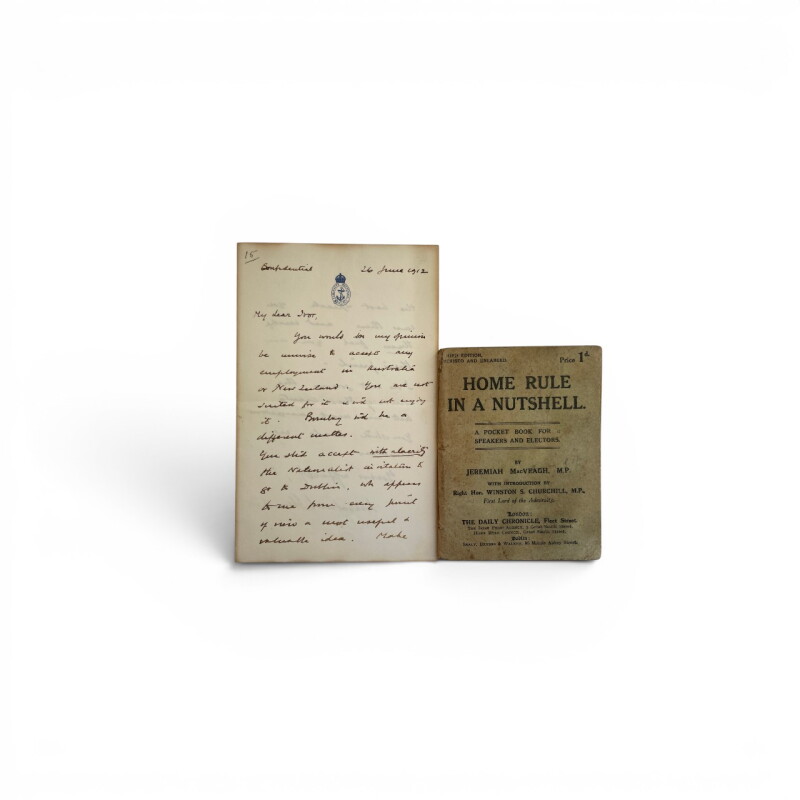 15
Confidential 26 June 1912
My dear Ivor,
You would in my opinion
be unwise to accept any
employment in Australia
or New Zealand. You are not
suited for it & wd not enjoy
it. Bombay wd be a
different matter.
You shd accept with alacrity
the Nationalist invitation to
go to Dublin, wh appears
to me from every point
of view a most useful &
valuable idea. Make
EDITION,
REVISED AND ENLARGED. Price 1d.
HOME RULE
IN A NUTSHELL.
A POCKET BOOK FOR
SPEAKERS AND ELECTORS.
BY
JEREMIAH MACVEAGH, M.P.
WITH INTRODUCTION BY
Right Hon. WINSTON S. CHURCHILL, M.P.,
First Lord of the Admiralty.
London:
THE DAILY CHRONICLE, Fleet Street.
THE IRISH PRESS AGENCY, 2 Great Smith Street.
HOME RULE COUNCIL, Great Smith Street.
Dublin: